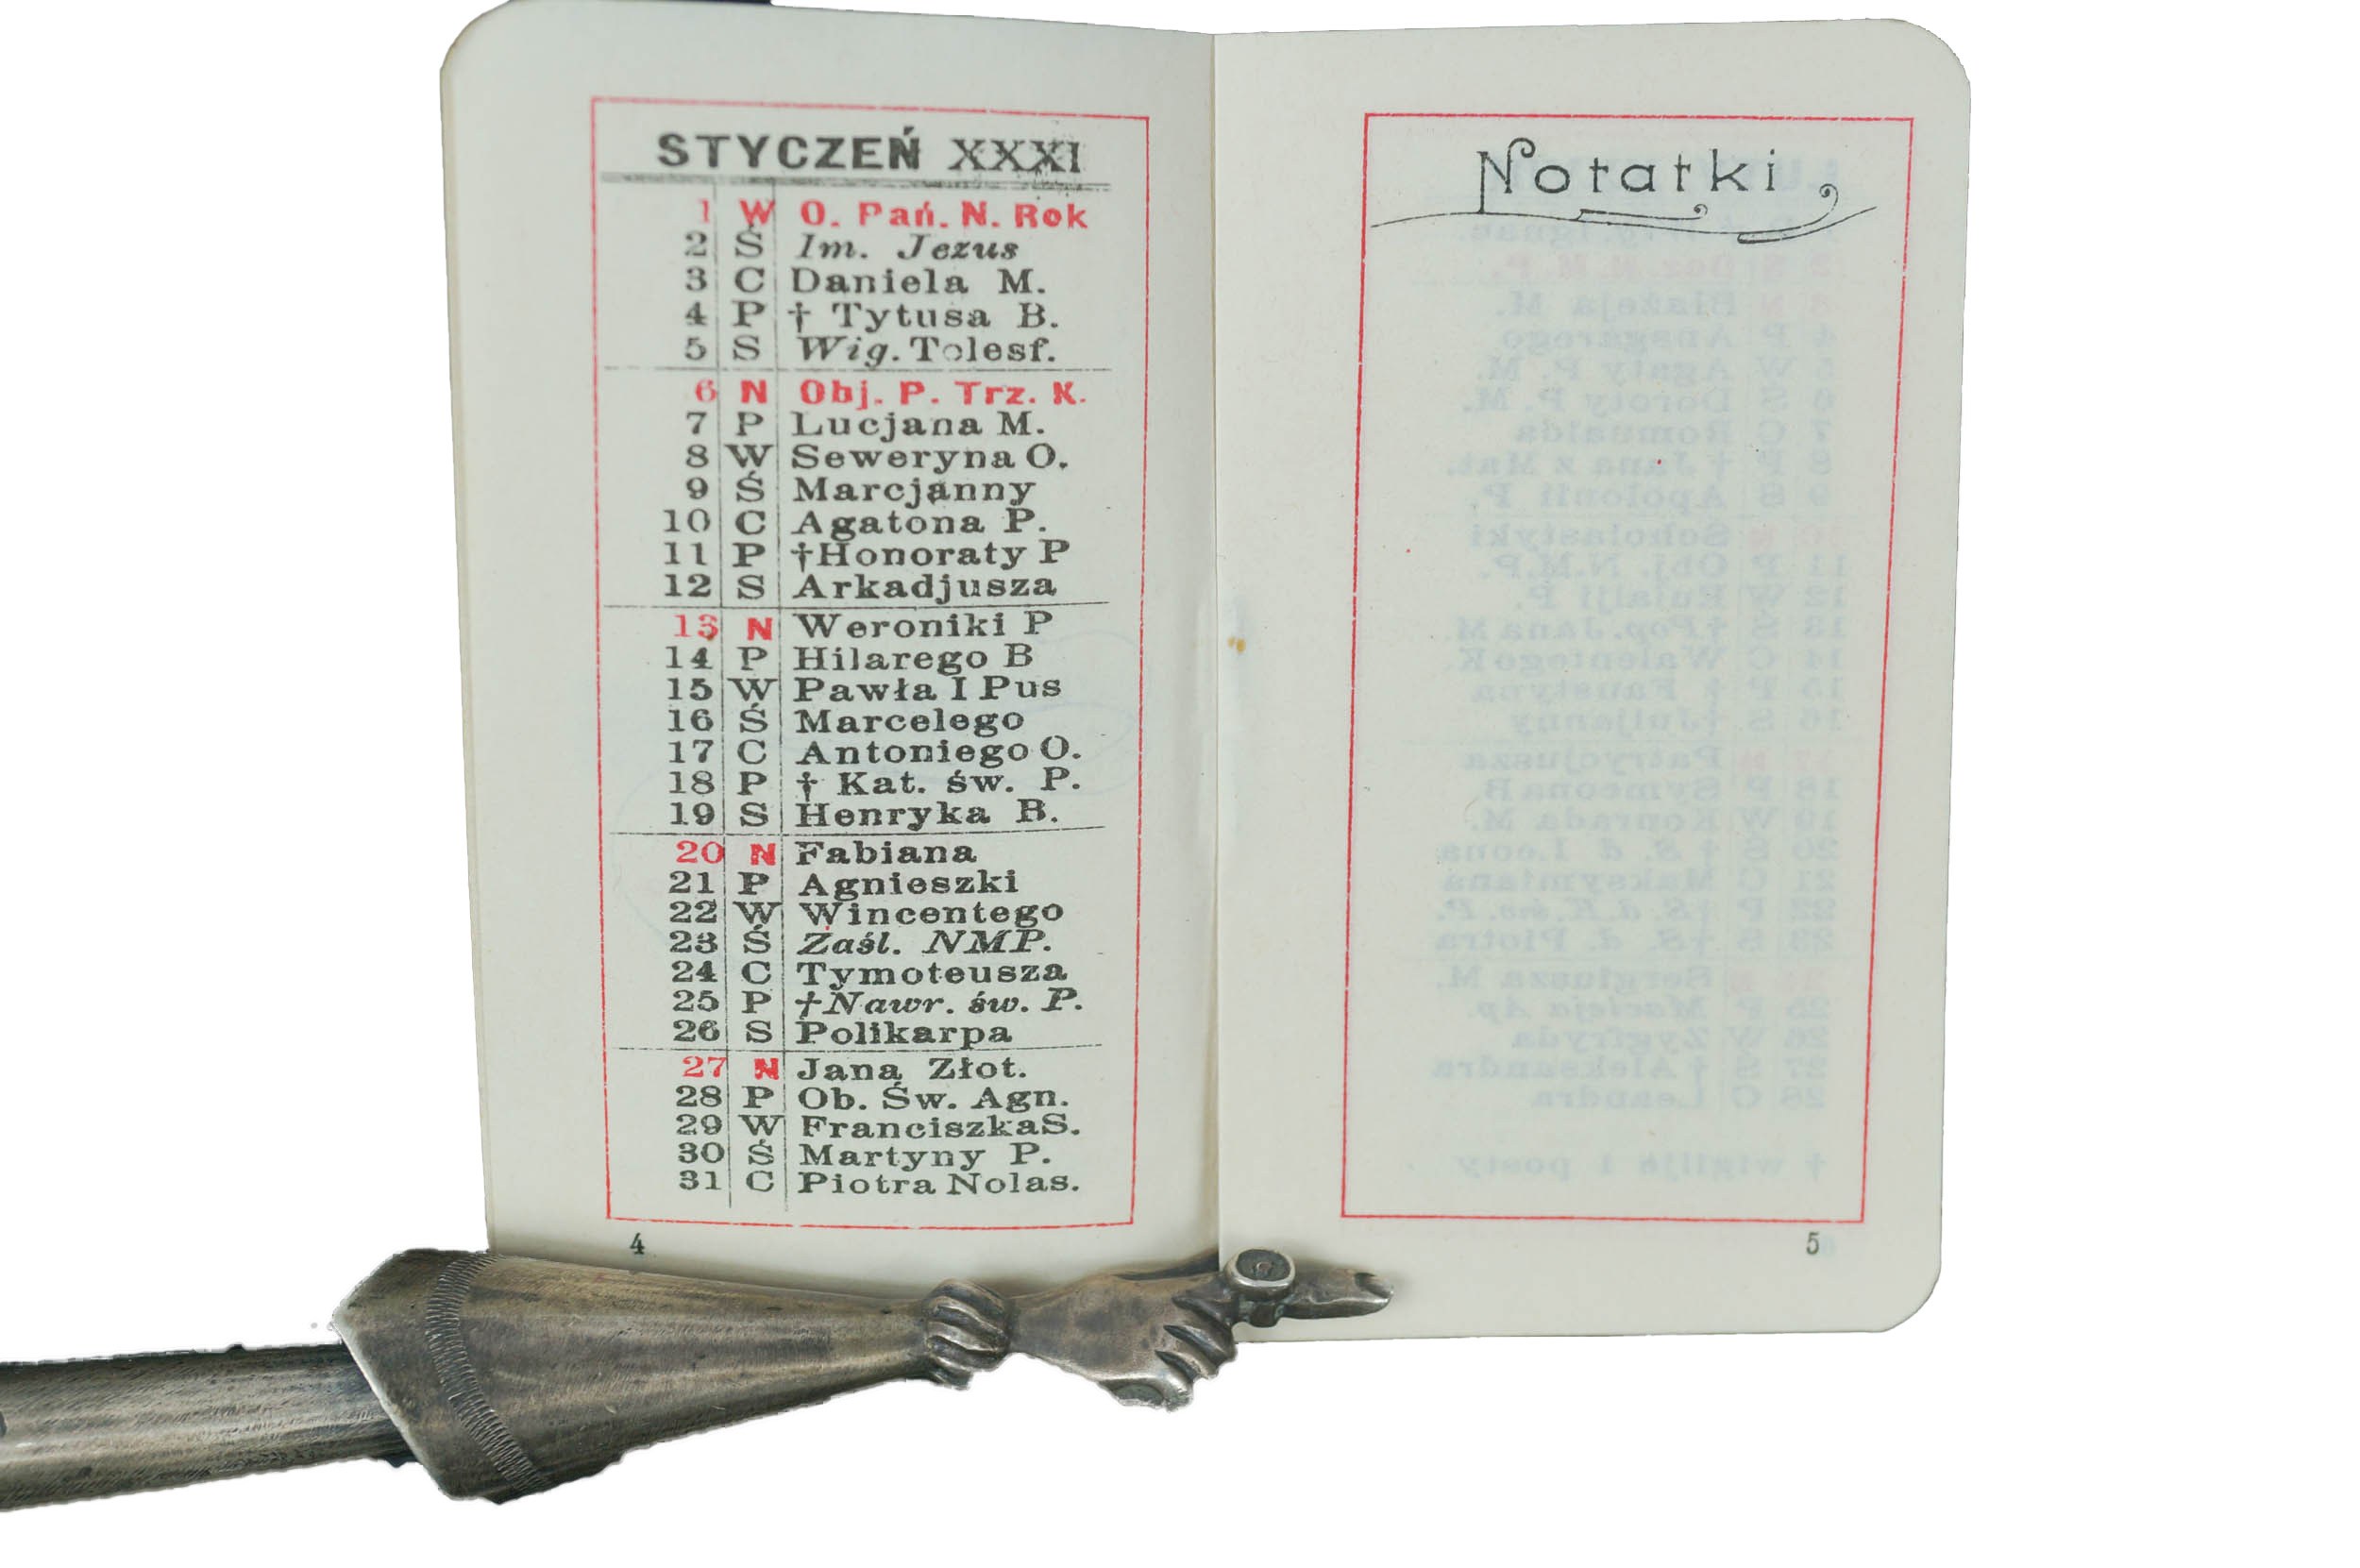 STYCZEŃ XXXI
1 W O. Pań. N. Rok
2 Ś Im. Jezus
3 C Daniela M.
4 P † Tytusa B.
5 S Wig. Tolesf.
6 N Obj. P. Trz. K.
7 P Lucjana M.
8 W Seweryna O.
9 Ś Marcjanny
10 C Agatona P.
11 P †Honoraty P
12 S Arkadjusza
13 N Weroniki P
14 P Hilarego B
15 W Pawła I Pus
16 Ś Marcelego
17 C Antoniego O.
18 P † Kat. św. P.
19 S Henryka B.
20 N Fabiana
21 P Agnieszki
22 W Wincentego
23 Ś Zaśl. NMP.
24 C Tymoteusza
25 P †Nawr. św. P.
26 S Polikarpa
27 N Jana Złot.
28 P Ob. Św. Agn.
29 W Franciszka S.
30 Ś Martyny P.
31 C Piotra Nolas.
4
Notatki
5